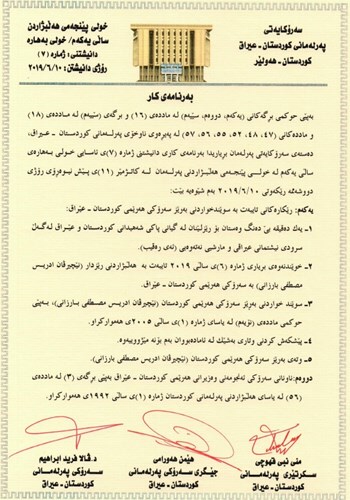 سەرۆکایەتی
پەرلەمانی کوردستان - عیراق
کوردستان - هەولێر
خولی پێنجەمی هەڵبژاردن
ساڵی یەکەم/ خولی بەهارە
دانیشتنی: ژمارە (٧)
ڕۆژی دانیشتن: ٢٠١٩/٦/١٠
بەرنامەی کار
بەپێی حوکمی برگەکانی (یەکەم، دووەم، سێیەم) لە ماددەی (١٦) و برگەی (سێیەم) لە ماددەی (١٨)
و ماددەکانی (٤٧، ٤٨، ٥٢، ٥٥، ٥٦، ٥٧) لە پەیڕەوی ناوخۆی پەرلەمانی کوردستان - عیراق،
دەستەی سەرۆکایەتی پەرلەمان بڕیاریدا بەرنامەی کاری دانیشتنی ژمارە (٧)ی ئاسایی خولی بەهارەی
ساڵی یەکەم لە خولی پێنجەمی هەڵبژاردنی پەرلەمان لە کاتژمێر (١١)ی پێش نیوەڕۆی ڕۆژی
دووشەممە ڕێکەوتی ٢٠١٩/٦/١٠ بەم شێوەیە بێت:
یەکەم: ڕێکارەکانی تایبەت بە سوێندخواردنی بەڕێز سەرۆکی هەرێمی کوردستان - عێراق:
١- یەک دەقیقە بێ دەنگ وەستان بۆ ڕێزلێنان لە گیانی پاکی شەهیدانی کوردستان و عێراق لەگەڵ
سرودی نیشتمانی عیراقی و مارشی نەتەوەیی (ئەی ڕەقیب).
٢- خوێندنەوەی بڕیاری ژمارە (٦)ی ساڵی ٢٠١٩ تایبەت بە هەڵبژاردنی ڕێزدار (نێچیرڤان ادریس
مصطفی بارزانی) بە سەرۆکی هەرێمی کوردستان - عێراق.
٣- سوێند خواردنی بەڕێز سەرۆکی هەرێمی کوردستان (نێچیرڤان ادریس مصطفی بارزانی)، بەپێی
حوکمی ماددەی (نۆیەم) لە یاسای ژمارە (١)ی ساڵی ٢٠٠٥ی هەموارکراو.
٤- پێشکەش کردنی وتاری بەشێک لە ئامادەبووان بەم بۆنە مێژووییەوە.
٥- وتەی بەڕێز سەرۆکی هەرێمی کوردستان (نێچیرڤان ادریس مصطفی بارزانی).
دووەم: ناونانی سەرۆکی ئەنجومەنی وەزیرانی هەرێمی کوردستان - عێراق بەپێی برگەی (٣) لە ماددەی
(٥٦) لە یاسای هەڵبژاردنی پەرلەمانی کوردستان ژمارە (١)ی ساڵی ١٩٩٢ی هەموارکراو.
منی نبی قهوچی
سکرتێری پەرلەمانی
کوردستان - عێراق
هێمن هەورامی
جێگری سەرۆکی پەرلەمانی
کوردستان - عێراق
د.ڤالا فرید ابراهیم
سەرۆکی پەرلەمانی
کوردستان - عێراق